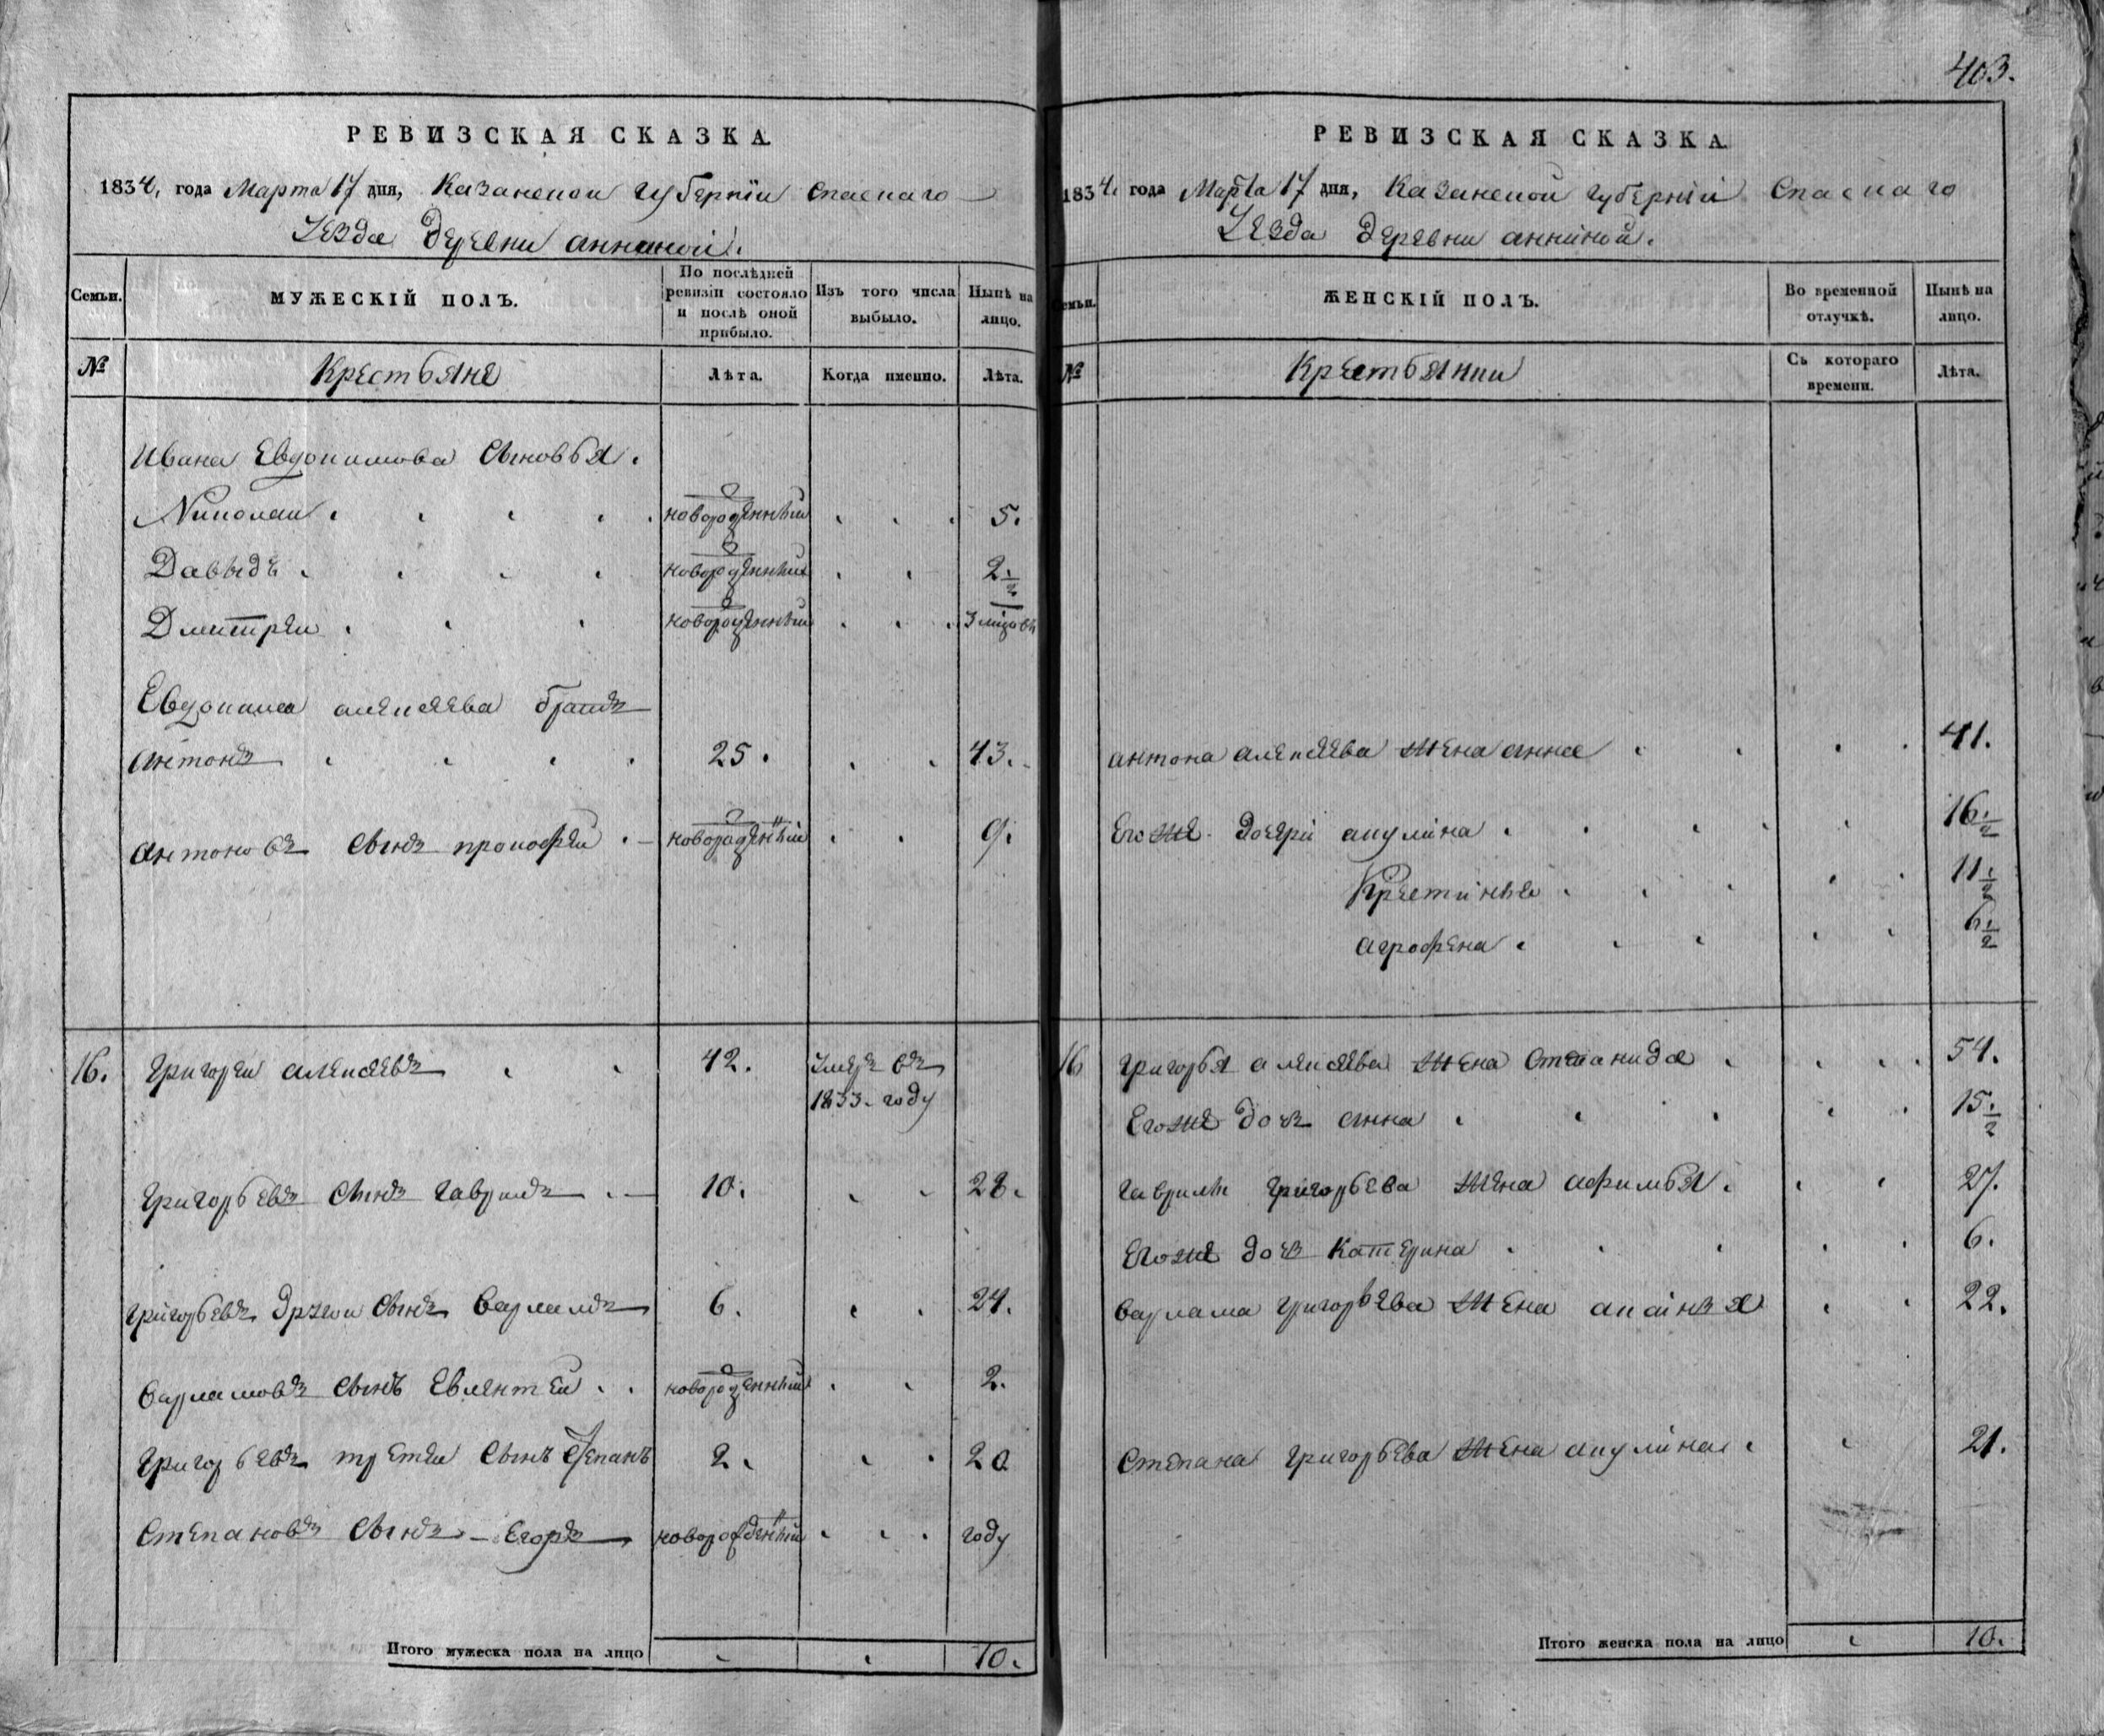 403.
РЕВИЗСКАЯ СКАЗКА.
1834, года Марта 17 дня, Казанской губернїи Спаскаго
Уезда деревни анниной.
Семьи.
МУЖЕСКІЙ ПОЛЪ.
По послѣдней ревизіи состояло и послѣ оной прибыло.
Изъ того числа выбыло.
Нынѣ на лицо.
№
Крестьяне
Лѣта.
Когда именно.
Лѣта.
Ивана Евдокимова сыновья.
Николаи новорожденный 5.
Давыдъ новорожденный 2 1/2
Дмитреи новорожденный 3 
Евдокима алексеева братъ
антонъ 25. 43.
антоновъ сынъ прокофей новорожденный 9.
16. григореи алексеевъ 42. Умеръ въ
1833. году
григорьевъ сынъ гаврилъ 10. 28.
григорьевъ другои сынъ варламъ 6. 24.
варламовъ сынъ Евлентей новорожденный 2.
григорьевъ третеи сынъ степанъ 2. 20
степановъ сынъ Егоръ новорожденный году
Итого мужеска пола на лицо 10.
РЕВИЗСКАЯ СКАЗКА.
1834 года Марта 17 дня, Казанской губернїи Спаскаго
Уезда деревни анниной.
Семьи.
ЖЕНСКІЙ ПОЛЪ.
Во временной отлучкѣ.
Нынѣ на лицо.
№
Крестьянки
Съ котораго времени.
Лѣта.
антона алексеева жена анна 41.
Егоже дочери акулина 16 1/2
Крестинья 11 1/2
аграфена 6 1/2
16 григорья алексеева жена степанида 54.
Егоже дочь анна 15 1/2
гаврилы григорьева жена афимья 27.
Егоже дочь катерина 6.
варлама григорьева жена 22.
степана григорьева жена акулина 21.
Итого женска пола на лицо 10.